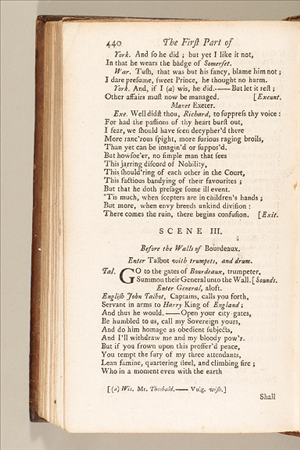 440 The First Part of
York. And so he did ; but yet I like it not,
In that he wears the badge of Somerset.
War. Tush, that was but his fancy, blame him not ;
I dare presume, sweet Prince, he thought no harm.
York. And, if I (a) wis, he did.——But let it rest ;
Other affairs must now be managed. [Exeunt.
Manet Exeter.
Exe. Well didst thou, Richard, to suppress thy voice :
For had the passions of thy heart burst out,
I fear, we should have seen decypher'd there
More ranc'rous spight, more furious raging broils,
Than yet can be imagin'd or suppos'd.
But howsoe'er, no simple man that sees
This jarring discord of Nobility,
This should'ring of each other in the Court,
This factious bandying of their favourites ;
But that he doth presage some ill event.
'Tis much, when scepters are in children's hands ;
But more, when envy breeds unkind division :
There comes the ruin, there begins confusion. [Exit.
SCENE III.
Before the Walls of Bourdeaux.
Enter Talbot with trumpets, and drum.
Tal. GO to the gates of Bourdeaux, trumpeter,
Summon their General unto the Wall. [Sounds.
Enter General, aloft.
English John Talbot, Captains, calls you forth,
Servant in arms to Harry King of England ;
And thus he would.——Open your city gates,
Be humbled to us, call my Sovereign yours,
And do him homage as obedient subjects,
And I'll withdraw me and my bloody pow'r.
But if you frown upon this proffer'd peace,
You tempt the fury of my three attendants,
Lean famine, quartering steel, and climbing fire ;
Who in a moment even with the earth
[(a) Wis. Mr. Theobald.—— Vulg. wish.]
Shall